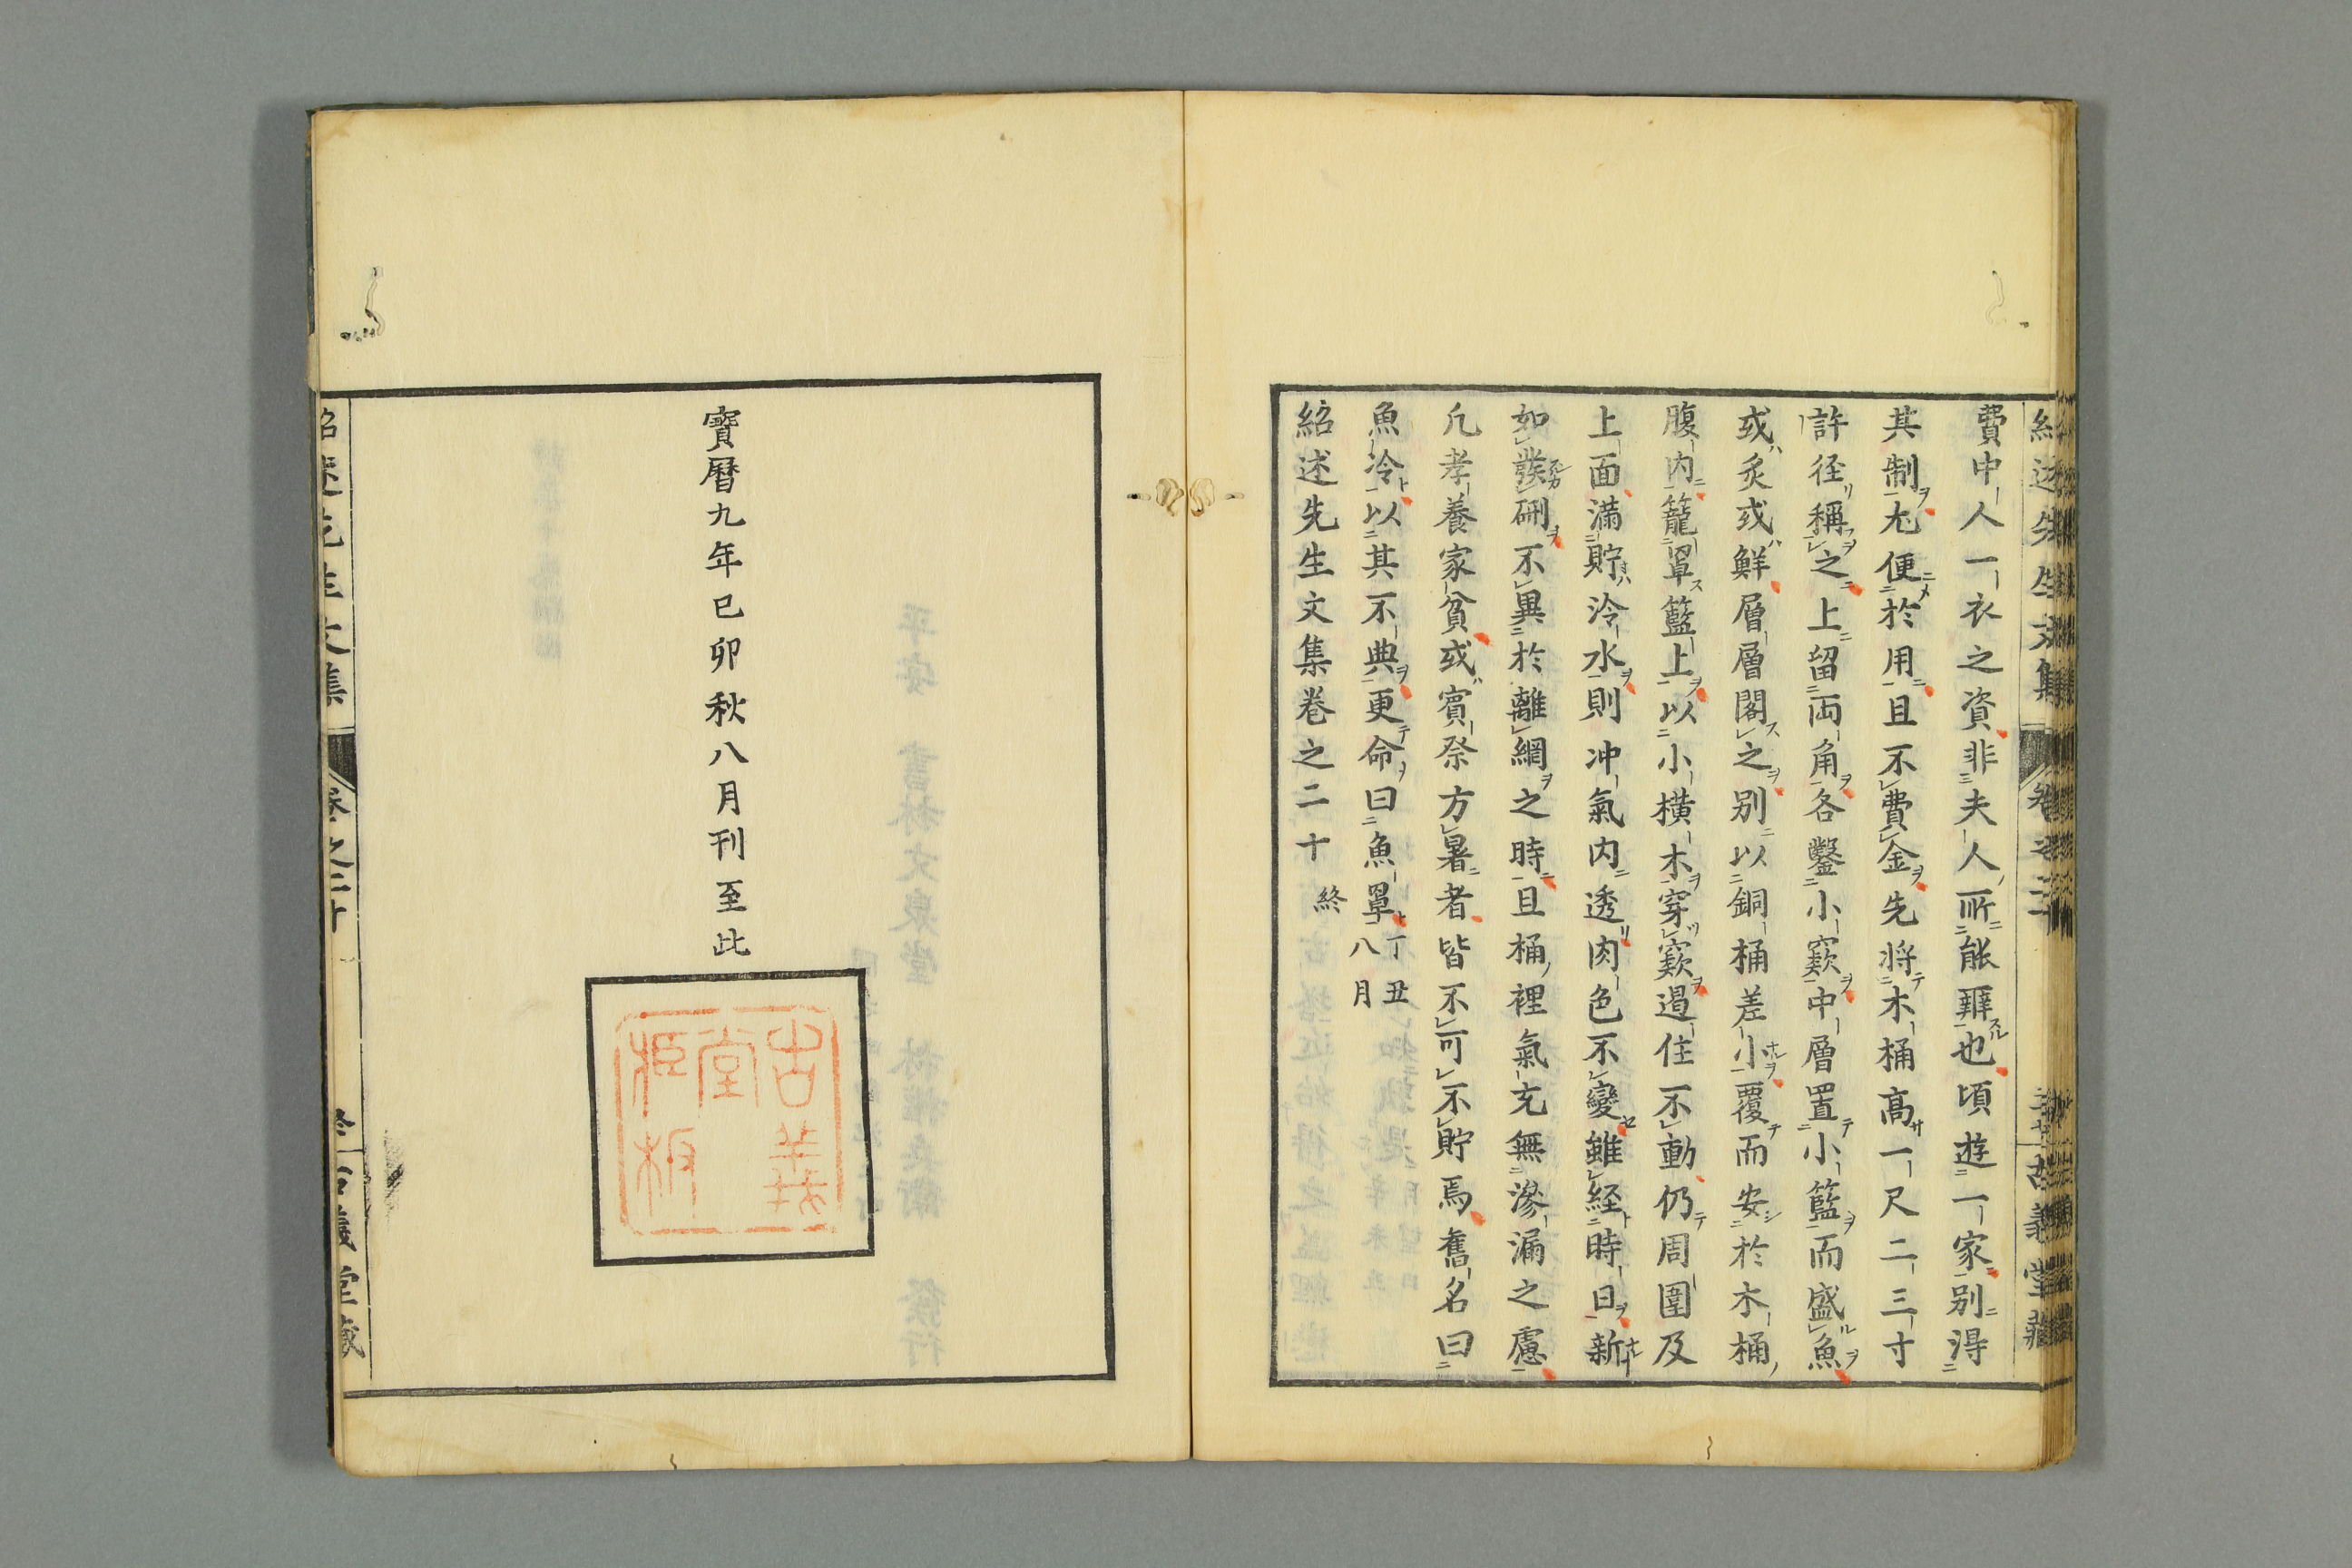 費中人一衣之資非夫人所能辨也頃遊一家別得
其制尤便於用且不費金先将木桶高一尺二三寸
許径稱之上留両角各鑿小窾中層置小籃而盛魚
或炙或鮮層層閣之別以銅桶差小覆而安於木桶
腹内籠罩籃上以小横木穿窾遏住不動仍周圍及
上面満貯冷水則冲氣内透肉色不變雖経時日新
如發硎不異於離網之時且桶裡氣充無滲漏之慮
凡孝養家貧或賓祭方暑者皆不可不貯焉舊名曰
魚冷以其不典更命曰魚罩丁丑八月
紹述先生文集巻之二十 終
寶暦九年己卯秋八月刊至此
古義堂板